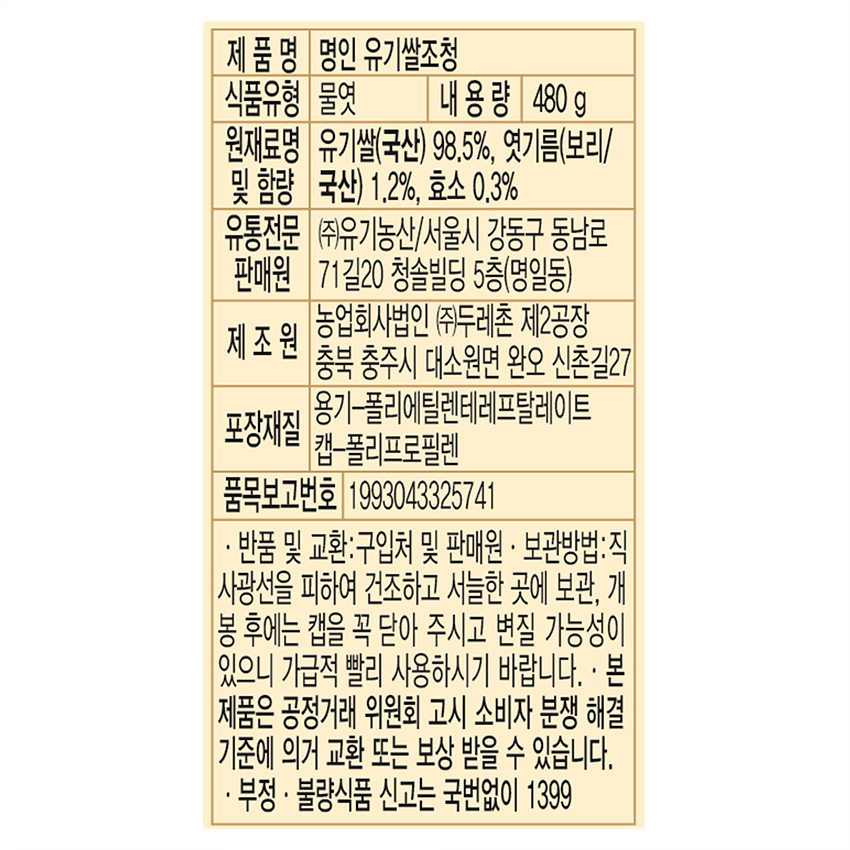 제 품 명 명인 유기쌀조청
식품유형 물엿 내 용 량 480 g
원재료명 유기쌀(국산) 98.5%, 엿기름(보리/
및 함량 국산) 1.2%, 효소 0.3%
유통전문 ㈜유기농산/서울시 강동구 동남로
판매원 71길20 청솔빌딩 5층(명일동)
제 조 원 농업회사법인 ㈜두레촌 제2공장
충북 충주시 대소원면 완오 신촌길27
포장재질 용기–폴리에틸렌테레프탈레이트
캡–폴리프로필렌
품목보고번호 1993043325741
· 반품 및 교환:구입처 및 판매원 · 보관방법:직
사광선을 피하여 건조하고 서늘한 곳에 보관, 개
봉 후에는 캡을 꼭 닫아 주시고 변질 가능성이
있으니 가급적 빨리 사용하시기 바랍니다. · 본
제품은 공정거래 위원회 고시 소비자 분쟁 해결
기준에 의거 교환 또는 보상 받을 수 있습니다.
· 부정 · 불량식품 신고는 국번없이 1399